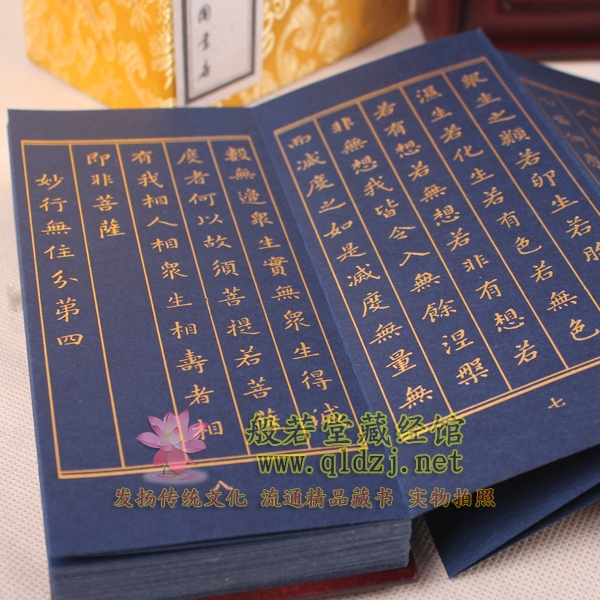 衆生之類若卵生若胎
濕生若化生若有色若無色
若有想若無想若非有想若
非無想我皆令入無餘涅槃
而滅度之如是滅度無量無
七
數無邊衆生實無衆生得滅
度者何以故須菩提若菩薩
有我相人相衆生相壽者相
即非菩薩
妙行無住分第四
八
般若堂藏经馆
www.qldzj.net
发扬传统文化 流通精品藏书 实物拍照